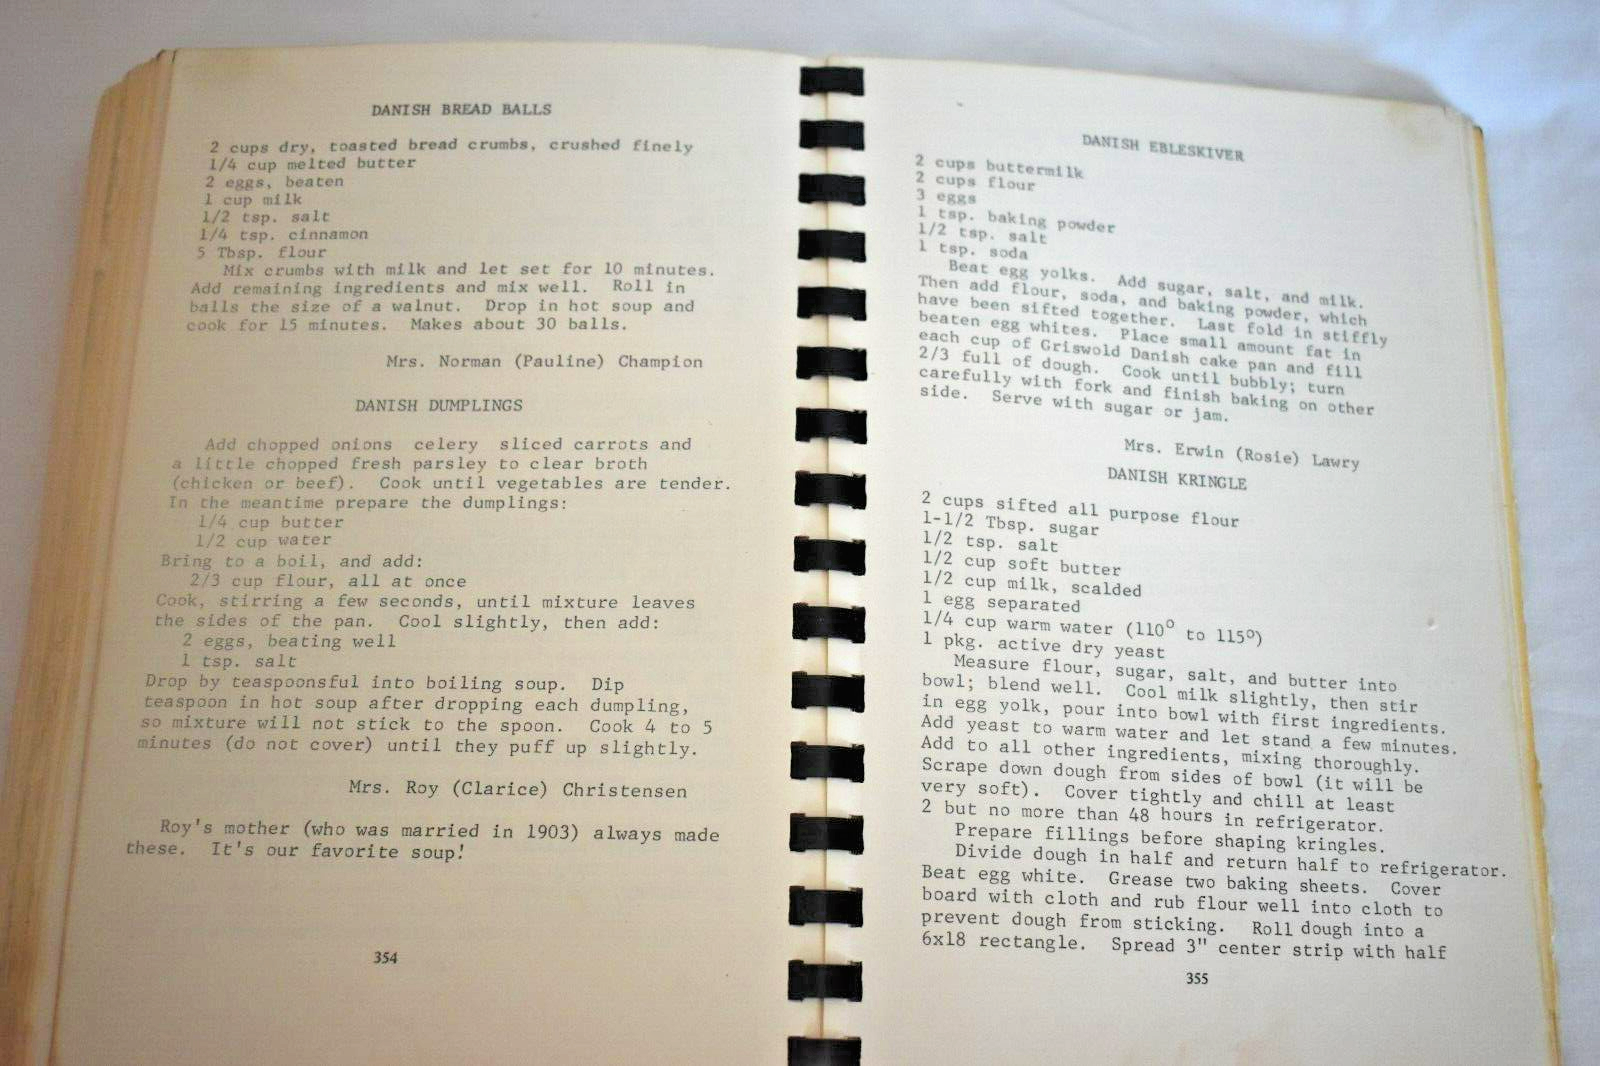 DANISH BREAD BALLS
2 cups dry, toasted bread crumbs, crushed finely
1/4 cup melted butter
2 eggs, beaten
1 cup milk
1/2 tsp. salt
1/4 tsp. cinnamon
5 Tbsp. flour
Mix crumbs with milk and let set for 10 minutes.
Add remaining ingredients and mix well. Roll in
balls the size of a walnut. Drop in hot soup and
cook for 15 minutes. Makes about 30 balls.
Mrs. Norman (Pauline) Champion
DANISH DUMPLINGS
Add chopped onions celery sliced carrots and
a little chopped fresh parsley to clear broth
(chicken or beef). Cook until vegetables are tender.
In the meantime prepare the dumplings:
1/4 cup butter
1/2 cup water
Bring to a boil, and add:
2/3 cup flour, all at once
Cook, stirring a few seconds, until mixture leaves
the sides of the pan. Cool slightly, then add:
2 eggs, beating well
1 tsp. salt
Drop by teaspoonsful into boiling soup. Dip
teaspoon in hot soup after dropping each dumpling,
so mixture will not stick to the spoon. Cook 4 to 5
minutes (do not cover) until they puff up slightly.
Mrs. Roy (Clarice) Christensen
Roy's mother (who was married in 1903) always made
these. It's our favorite soup!
354
DANISH EBLESKIVER
2 cups buttermilk
2 cups flour
3 eggs
1 tsp. baking powder
1/2 tsp. salt
1 tsp. soda
Beat egg yolks. Add sugar, salt, and milk.
Then add flour, soda, and baking powder, which
have been sifted together. Last fold in stiffly
beaten egg whites. Place small amount fat in
each cup of Griswold Danish cake pan and fill
2/3 full of dough. Cook until bubbly; turn
carefully with fork and finish baking on other
side. Serve with sugar or jam.
Mrs. Erwin (Rosie) Lawry
DANISH KRINGLE
2 cups sifted all purpose flour
1-1/2 Tbsp. sugar
1/2 tsp. salt
1/2 cup soft butter
1/2 cup milk, scalded
1 egg separated
1/4 cup warm water (110° to 115°)
1 pkg. active dry yeast
Measure flour, sugar, salt, and butter into
bowl; blend well. Cool milk slightly, then stir
in egg yolk, pour into bowl with first ingredients.
Add yeast to warm water and let stand a few minutes.
Add to all other ingredients, mixing thoroughly.
Scrape down dough from sides of bowl (it will be
very soft). Cover tightly and chill at least
2 but no more than 48 hours in refrigerator.
Prepare fillings before shaping kringles.
Divide dough in half and return half to refrigerator.
Beat egg white. Grease two baking sheets. Cover
board with cloth and rub flour well into cloth to
prevent dough from sticking. Roll dough into a
6x18 rectangle. Spread 3" center strip with half
355